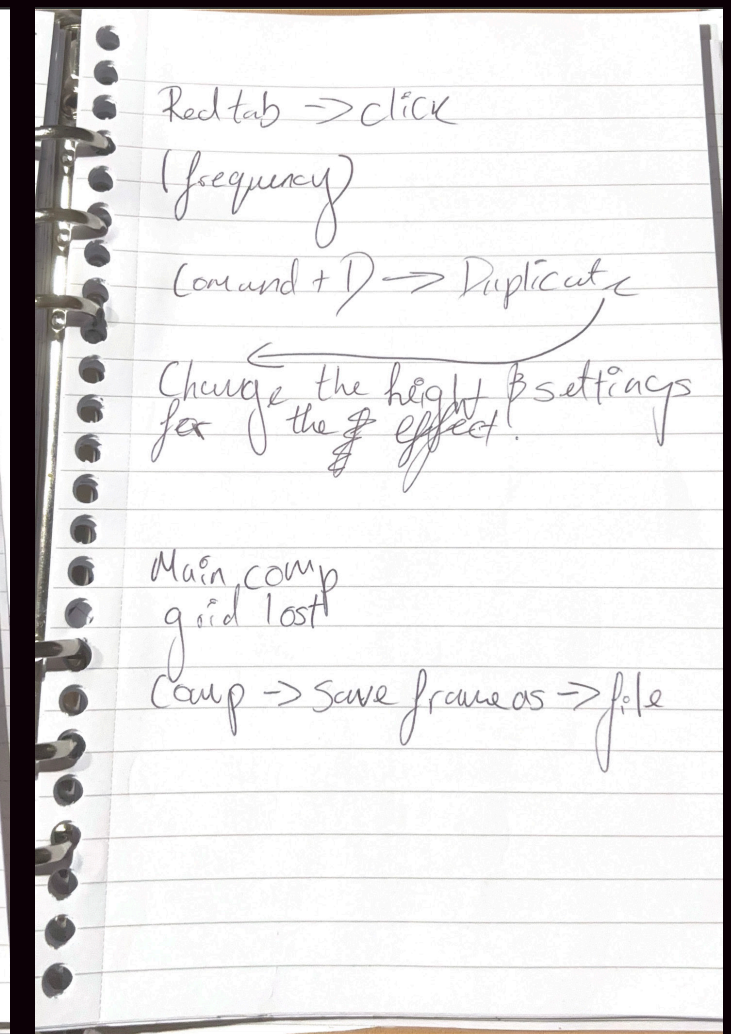 Red tab -> click
(frequency)
Comand + D -> Duplicate
Change the height & settings
for the effect!
Main comp
grid lost
Comp -> Save frame as -> file